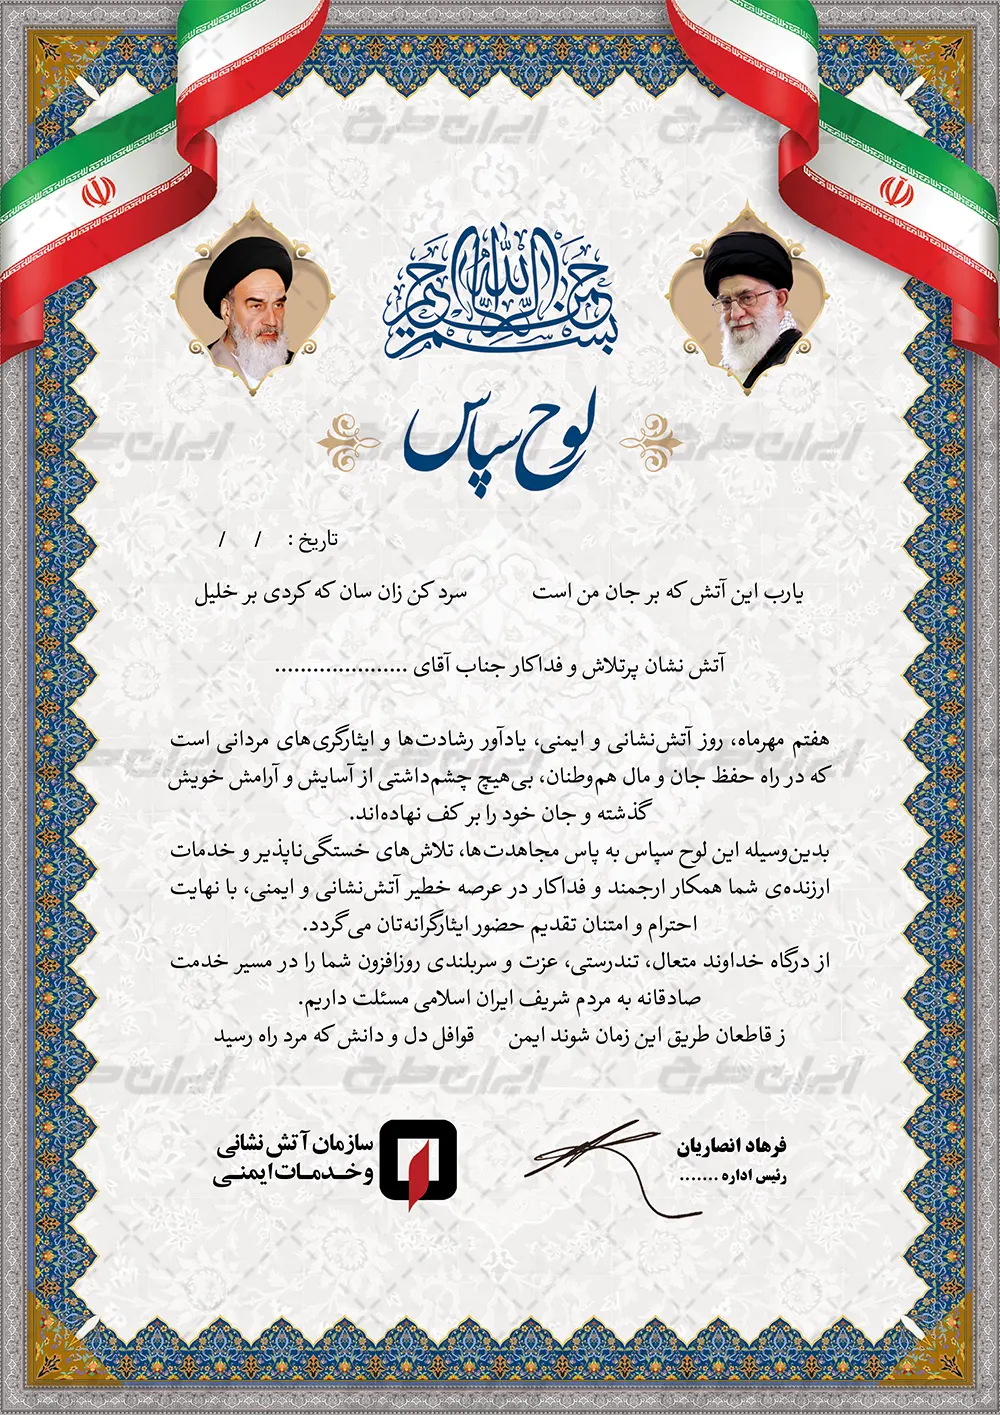 بسم الله الرحمن الرحیم
لوح سپاس
تاریخ : / /
یارب این آتش که بر جان من است سرد کن زان سان که کردی بر خلیل
آتش نشان پرتلاش و فداکار جناب آقای .....................
هفتم مهرماه، روز آتش‌نشانی و ایمنی، یادآور رشادت‌ها و ایثارگری‌های مردانی است
که در راه حفظ جان و مال هم‌وطنان، بی‌هیچ چشم‌داشتی از آسایش و آرامش خویش
گذشته و جان خود را بر کف نهاده‌اند.
بدین‌وسیله این لوح سپاس به پاس مجاهدت‌ها، تلاش‌های خستگی‌ناپذیر و خدمات
ارزنده‌ی شما همکار ارجمند و فداکار در عرصه خطیر آتش‌نشانی و ایمنی، با نهایت
احترام و امتنان تقدیم حضور ایثارگرانه‌تان می‌گردد.
از درگاه خداوند متعال، تندرستی، عزت و سربلندی روزافزون شما را در مسیر خدمت
صادقانه به مردم شریف ایران اسلامی مسئلت داریم.
ز قاطعان طریق این زمان شوند ایمن قوافل دل و دانش که مرد راه رسید
فرهاد انصاریان
رئیس اداره .......
سازمان آتش نشانی
و خدمات ایمنی
ایران طرح